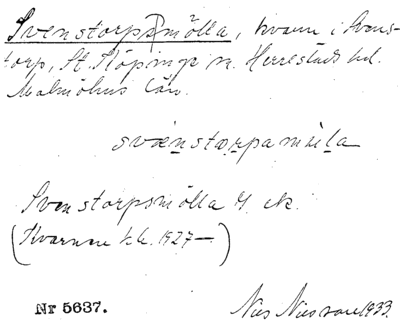 Svenstorpsmölla, kvarn i Svens-
torp, St. Köpinge sn. Herrestads hd.
Malmöhus län.
svænstærpamɯla
Svenstorpsmölla G. ek.
(Kvarnen k.k. 1927 —)
Nr 5637.
Nils Nilsson 1933.